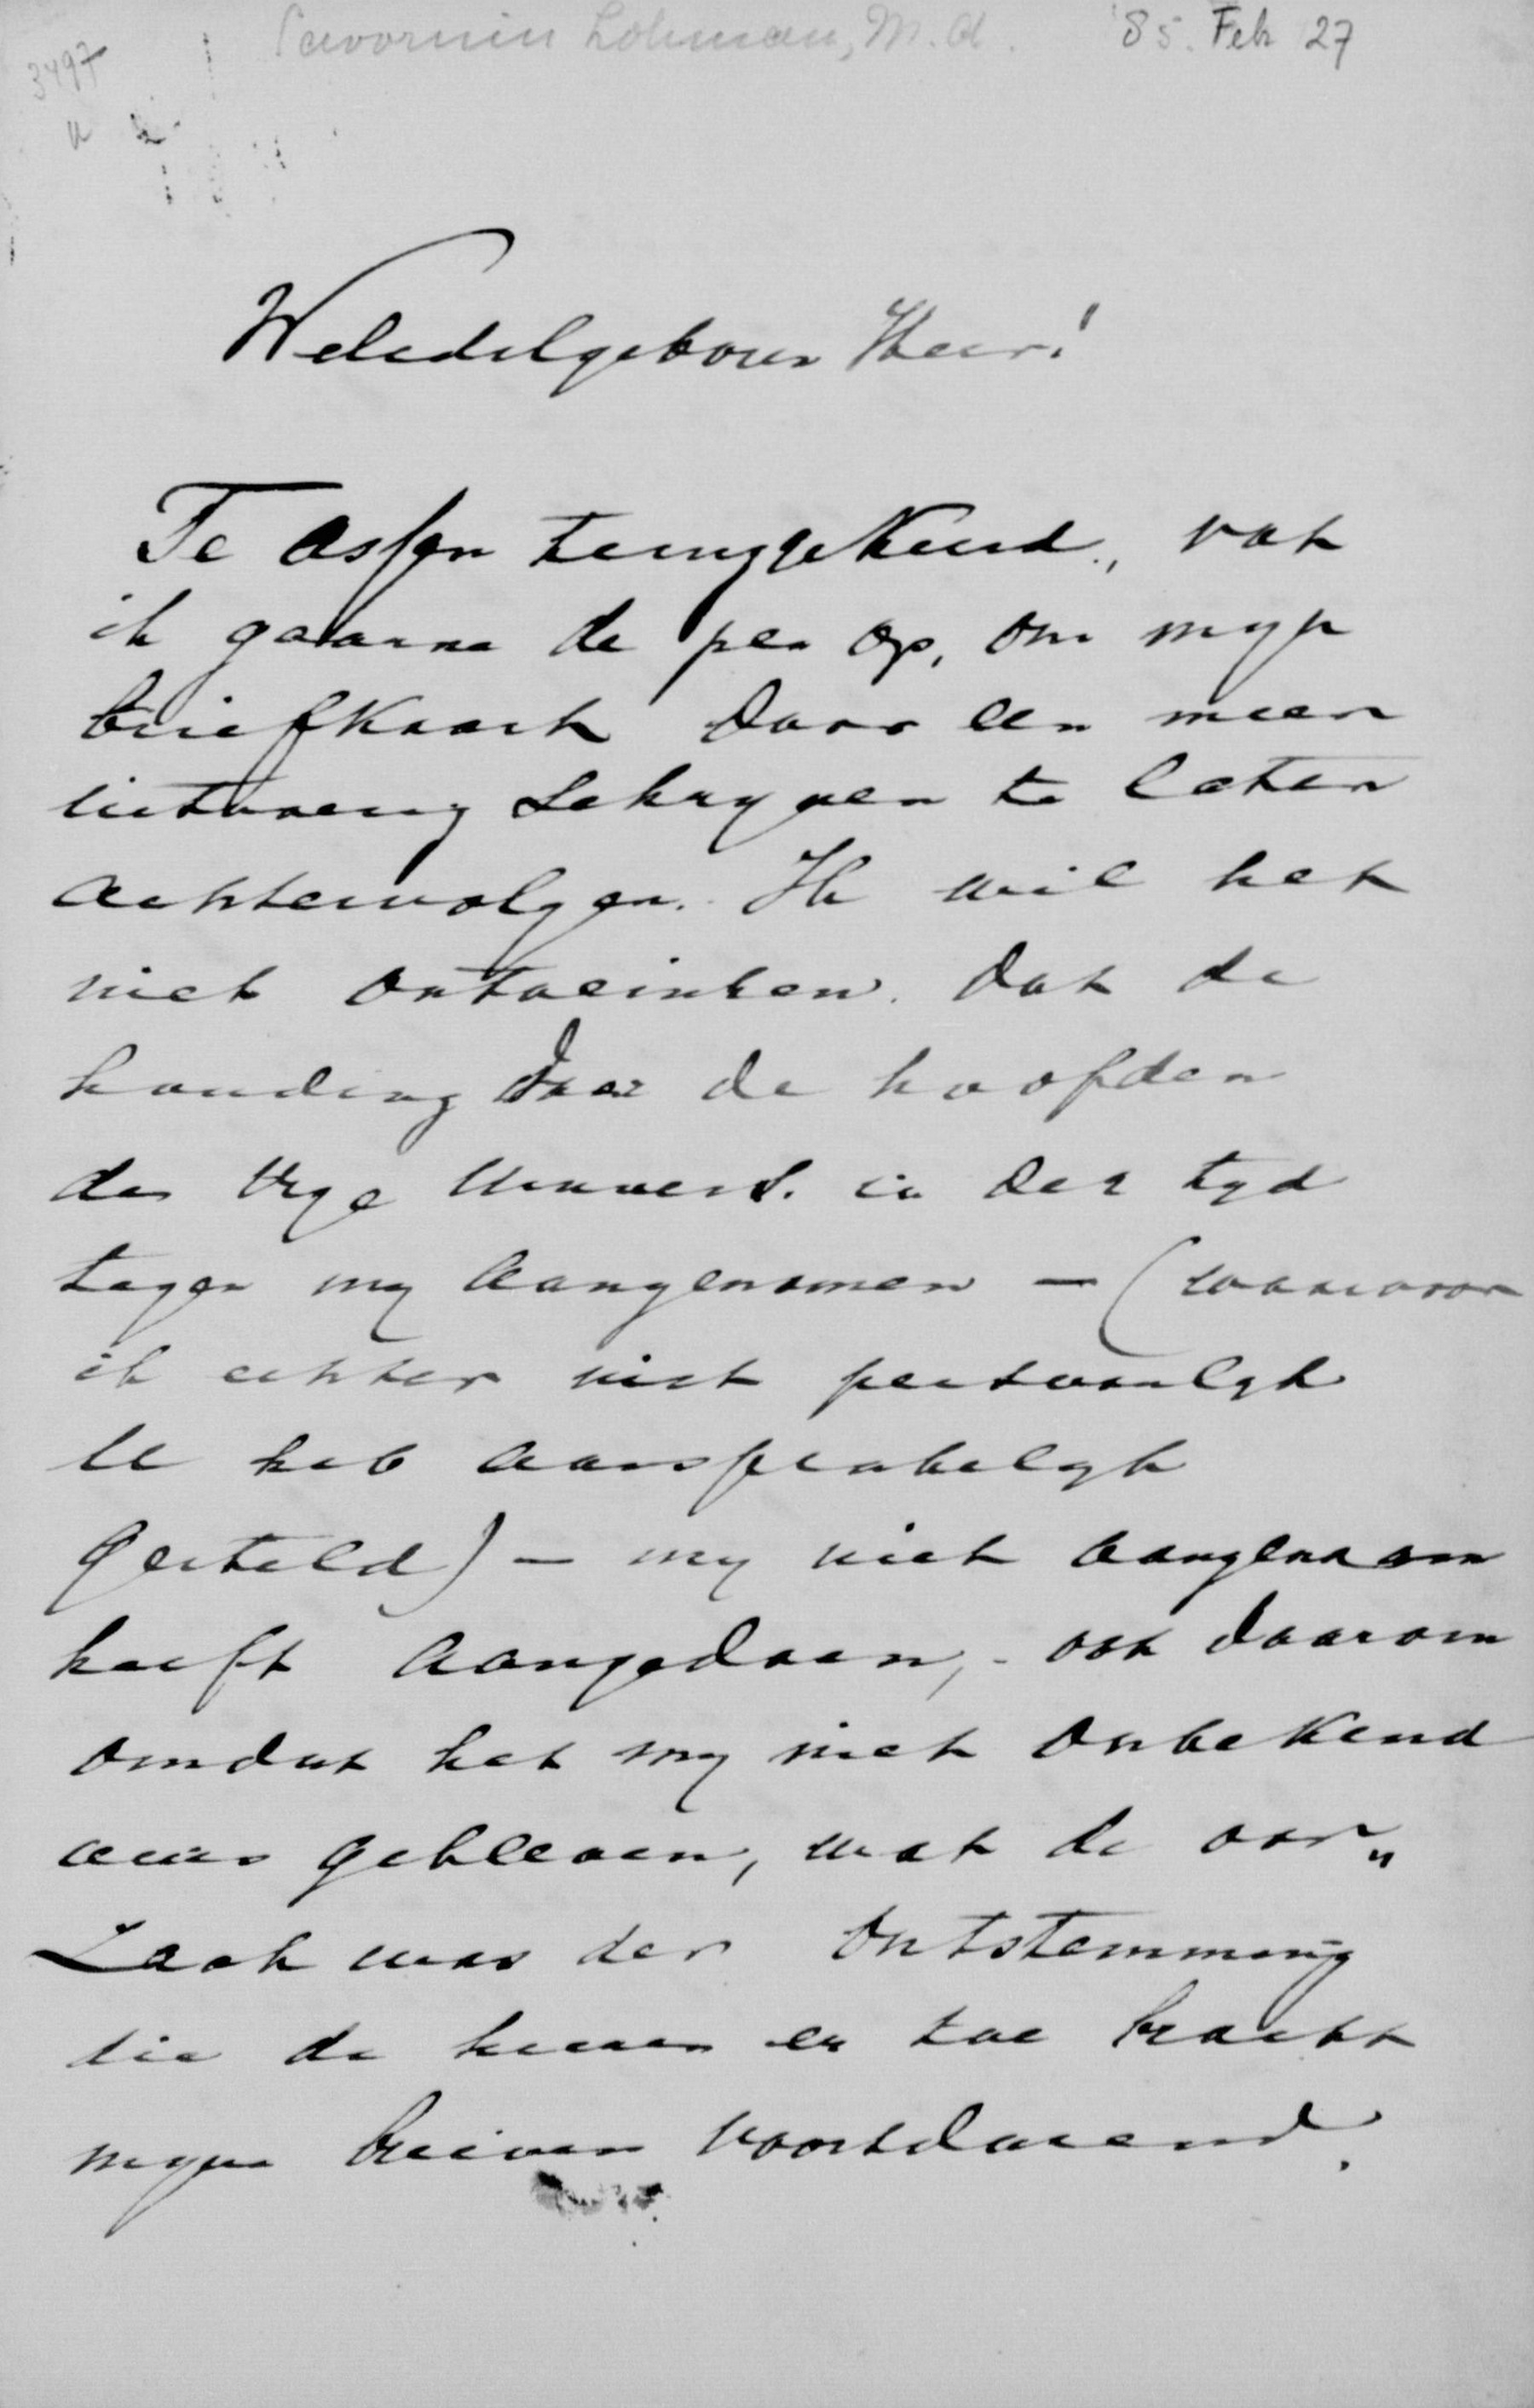 Savornin Lohman, M. d. '85. Feb 27
3497
Weledelgeboren Heer!
Te Assen teruggekeerd, vat
ik gaarne de pen op, om myn
briefkaart door een meer
uitvoerig schryven te laten
achtervolgen. Ik wil het
niet ontveinzen dat de
houding door de hoofden
der Vrye Univers. in der tyd
tegen my aangenomen — (waarvoor
ik echter niet persoonlyk
U heb aansprakelyk
gesteld) — my niet aangenaam
heeft aangedaan, - ook daarom
omdat het my niet onbekend
was gebleven, wat de oor„
zaak was der ontstemming
die de heeren er toe bracht
myne brieven voortdurend